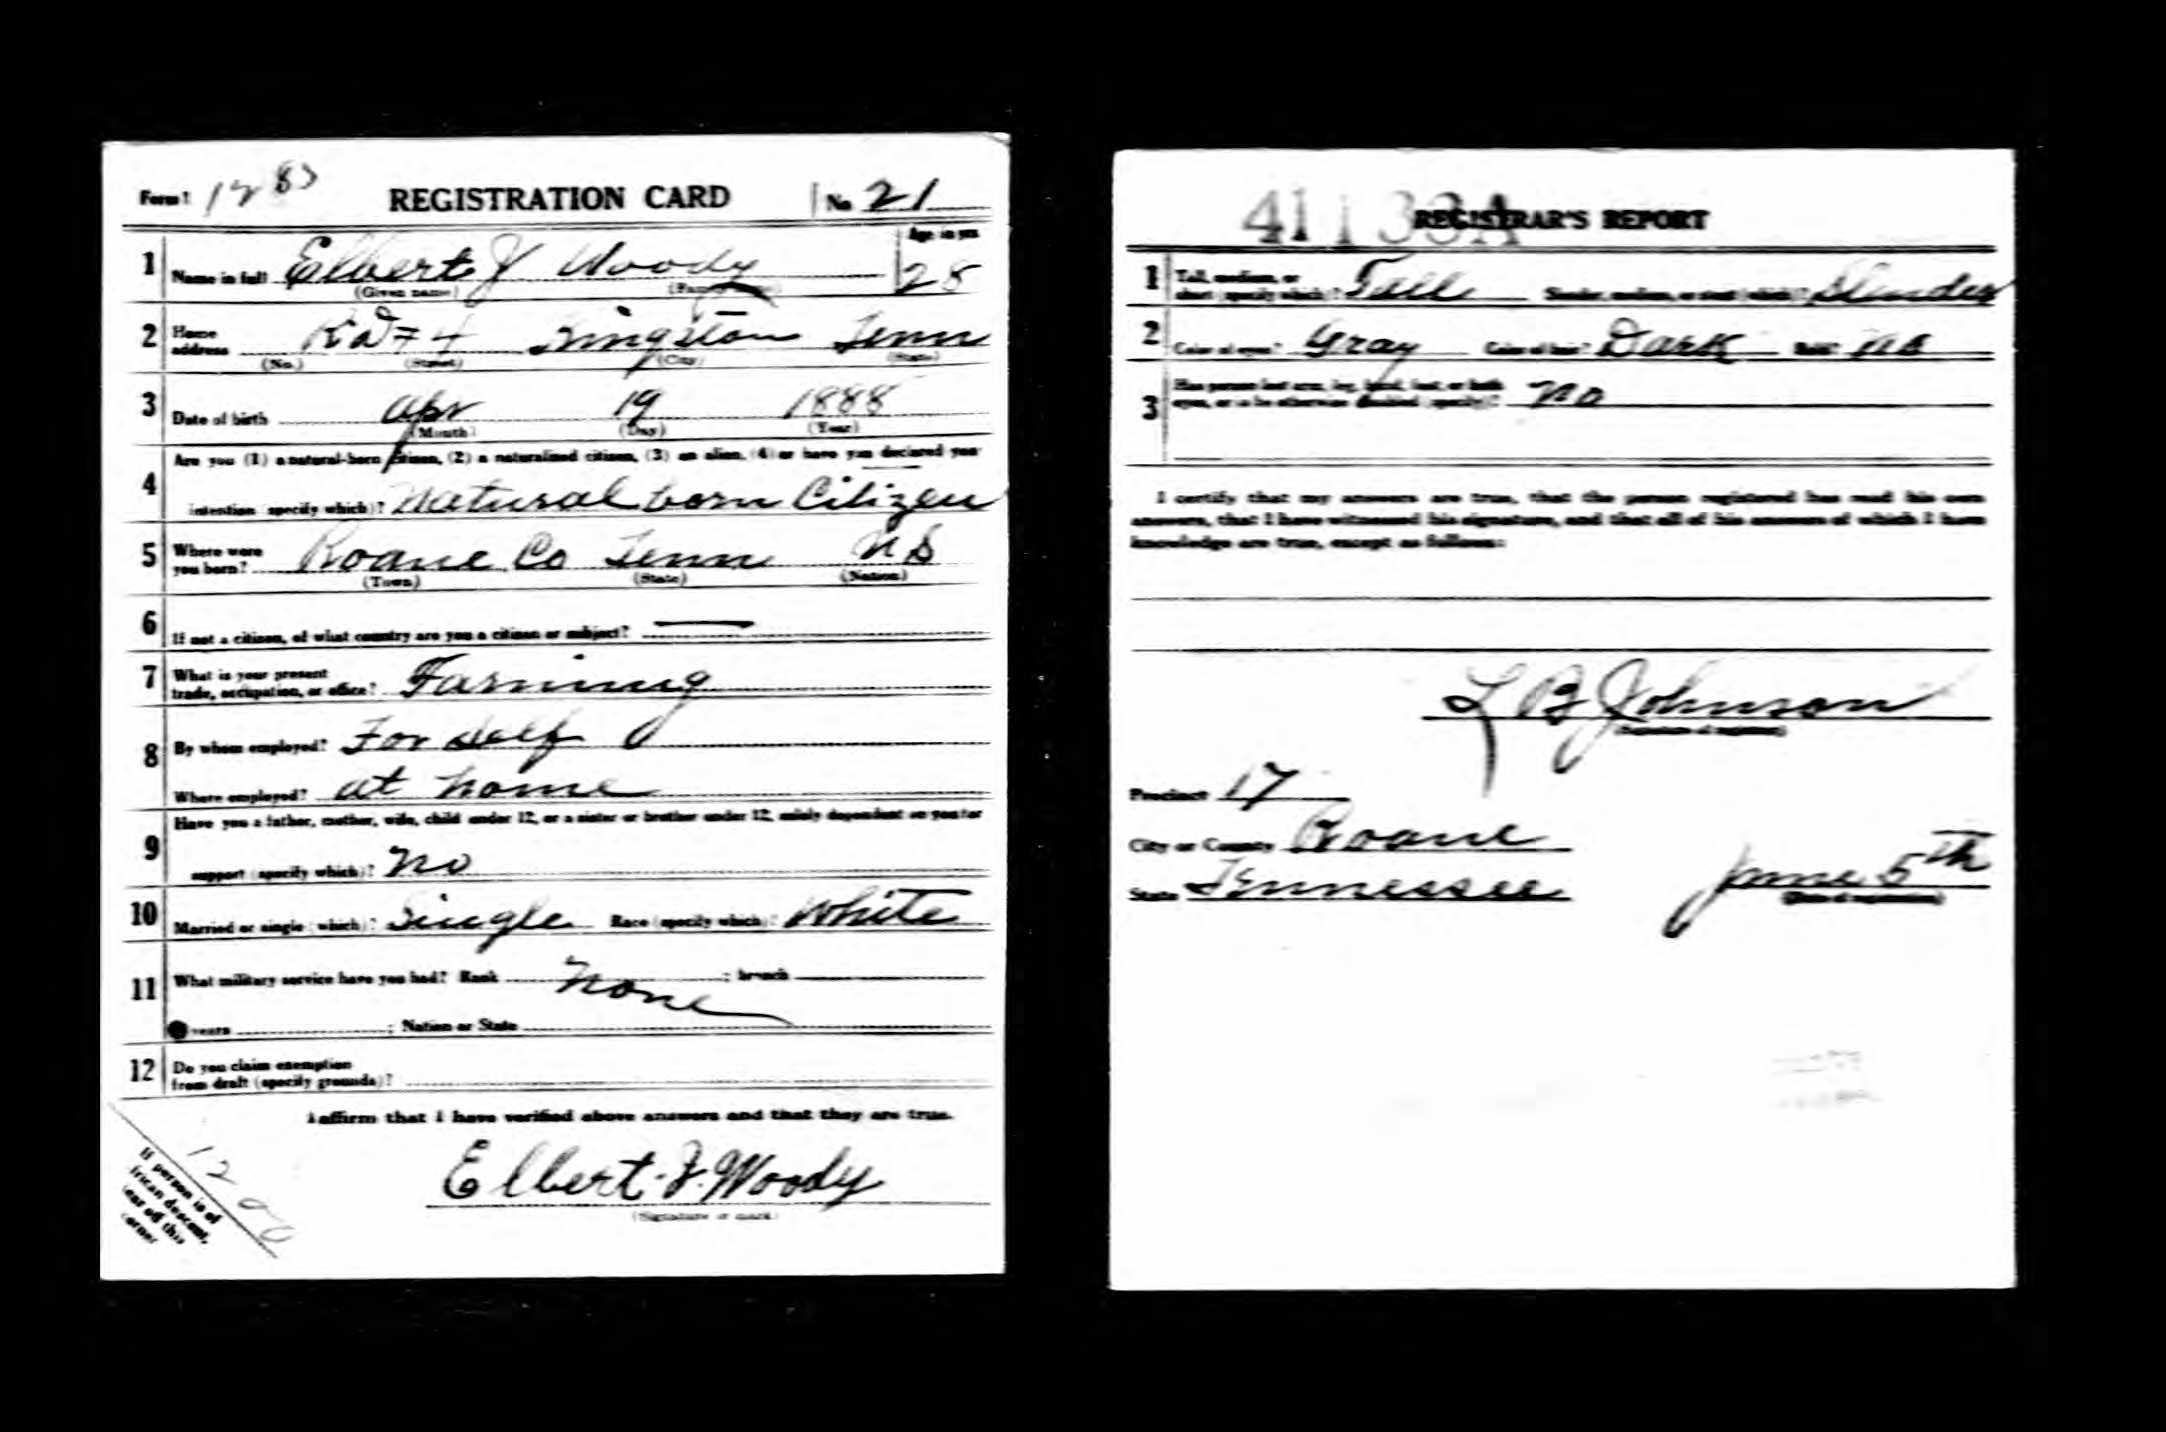 Form 1 1283 REGISTRATION CARD No. 21
1 Name in full Elbert J Woody Age in yrs 28
(Given name) (Family name)
2 Home address RD # 4 Kingston Tenn
(No.) (Street) (City) (State)
3 Date of birth Apr 19 1888
(Month) (Day) (Year)
4 Are you (1) a natural-born citizen, (2) a naturalized citizen, (3) an alien, (4) or have you declared your
intention (specify which)? Natural born Citizen
5 Where were you born? Roane Co Tenn US
(Town) (State) (Nation)
6 If not a citizen, of what country are you a citizen or subject?
7 What is your present
trade, occupation, or office? Farming
8 By whom employed? For self
Where employed? at home
9 Have you a father, mother, wife, child under 12, or a sister or brother under 12, solely dependent on you for
support (specify which)? No
10 Married or single (which)? Single Race (specify which)? White
11 What military service have you had? Rank None ; branch
years ; Nation or State
12 Do you claim exemption
from draft (specify grounds)?
I affirm that I have verified above answers and that they are true.
Elbert J. Woody
(Signature or mark)
If person is of
African descent,
tear off this
corner
41 1 33 A
REGISTRAR'S REPORT
1 Tall, medium, or
short (specify which)? Tall Slender, medium, or stout (which)? Slender
2 Color of eyes? Gray Color of hair? Dark Bald? no
3 Has person lost arm, leg, hand, foot, or both
eyes, or is he otherwise disabled (specify)? no
I certify that my answers are true, that the person registered has read his own
answers, that I have witnessed his signature, and that all of his answers of which I have
knowledge are true, except as follows:
L B Johnson
(Signature of registrar)
Precinct 17
City or County Roane
State Tennessee June 5th
(Date of registration)